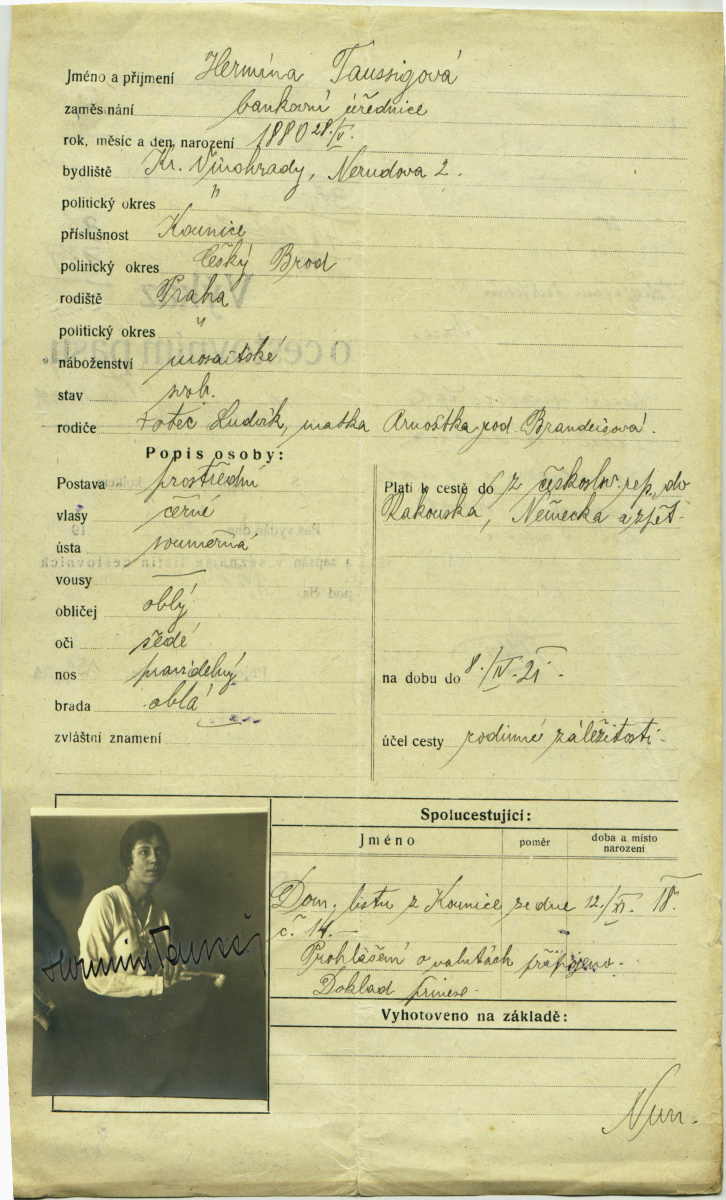 Jméno a příjmení Hermína Taussigová
zaměsnání bankovní úřednice
rok, měsíc a den narození 1880 28./V.
bydliště Kr. Vinohrady, Nerudova 2.
politický okres "
příslušnost Kounice
politický okres Český Brod
rodiště Praha
politický okres "
náboženství mosaitské
stav svob.
rodiče † otec Ludvík, matka Arnoštka rod. Brandeisová.
Popis osoby:
Postava prostřední
vlasy černé
ústa souměrná
vousy —
obličej oblý
oči šedé
nos pravidelný
brada oblá
zvláštní znamení
Platí k cestě do z českoslov. rep. do
Rakouska, Německa a zpět.
na dobu do 8./IV. 21.
účel cesty rodinné záležitosti.
Spolucestující:
Jméno poměr doba a místo narození
Dom. listu z Kounice ze dne 12./XI. 18.
č. 14.—
Prohlášení o valutách připojeno.
Doklad
Vyhotoveno na základě: